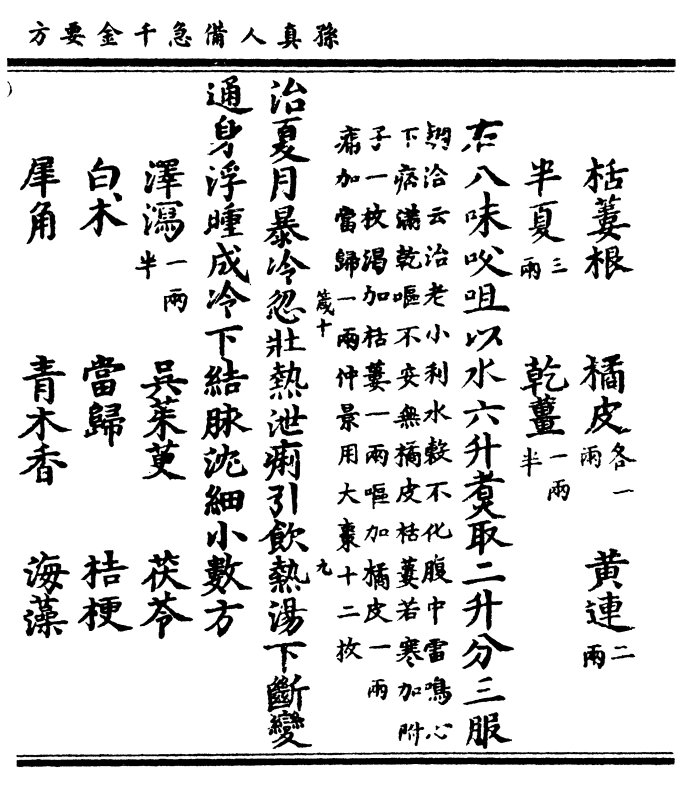 孫真人備急千金要方
栝蔞根 橘皮各一兩 黄連二兩
半夏三兩 乾薑一兩半
右八味㕮咀以水六升煮取二升分三服
洽云治老小利水穀不化腹中雷鳴心
下痞滿乾嘔不安無橘皮栝蔞若寒加附
子一枚渴加栝蔞一兩嘔加橘皮一兩
痛加當歸一兩仲景用大棗十二枚
箴十 九
治夏月暴冷忽壯熱泄痢引飲熱湯下斷變
通身浮腫成冷下結脉沈細小數方
澤瀉一兩半 吳茱萸 茯苓
白术 當歸 桔梗
犀角 青木香 海藻